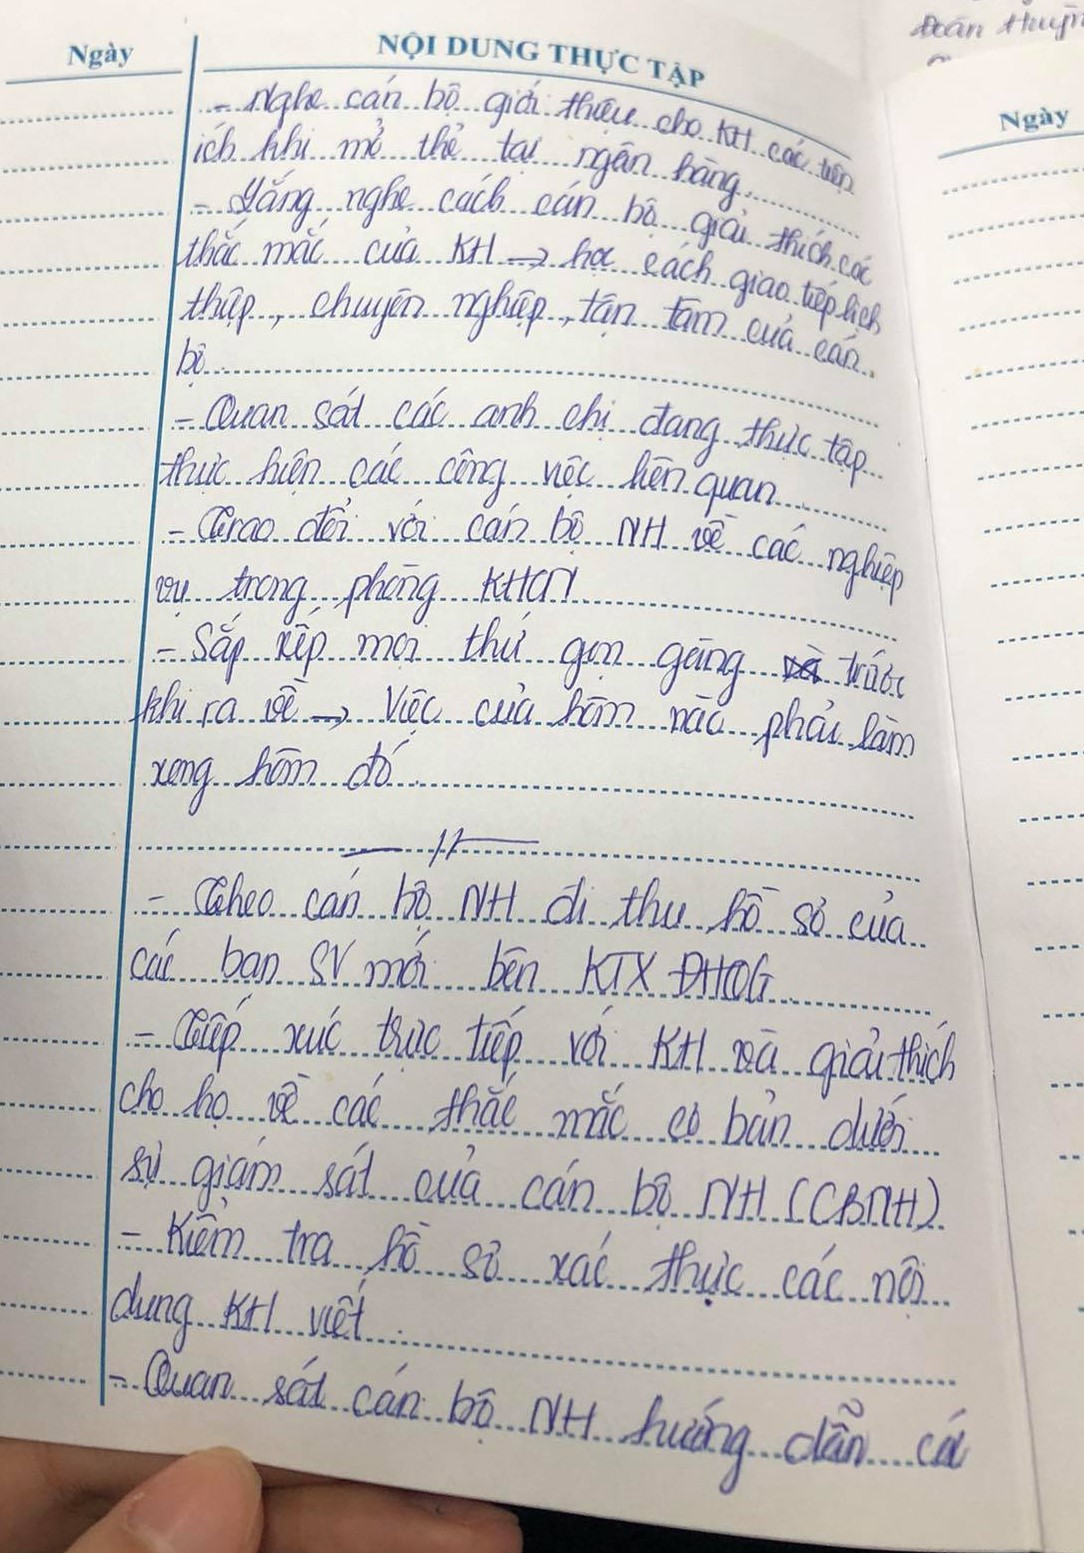 Đoàn Huỳn
Ngày
NỘI DUNG THỰC TẬP
Ngày
- Nghe cán bộ giới thiệu cho KH các tiện
ích khi mở thẻ tại ngân hàng.
- Lắng nghe cách cán bộ giải thích các
thắc mắc của KH → học cách giao tiếp lịch
thiệp, chuyên nghiệp, tận tâm của cán
bộ.
- Quan sát các anh chị đang thực tập
thực hiện các công việc liên quan
- Trao đổi với cán bộ NH về các nghiệp
vụ trong phòng KHCN
- Sắp xếp mọi thứ gọn gàng trước
khi ra về → Việc của hôm nào phải làm
xong hôm đó.
- Theo cán bộ NH đi thu hồ sơ của
các bạn SV mới bên KTX ĐHQG.
- Tiếp xúc trực tiếp với KH và giải thích
cho họ về các thắc mắc cơ bản dưới
sự giám sát của cán bộ NH (CBNH)
- Kiểm tra hồ sơ xác thực các nội
dung KH viết.
- Quan sát cán bộ NH hướng dẫn cá